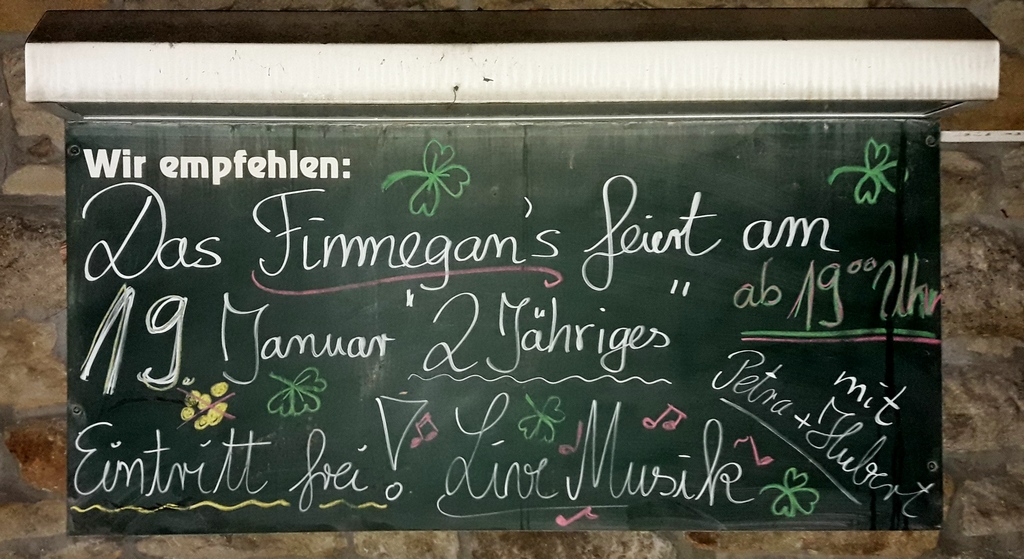 Wir empfehlen:
Das Finnegan's feiert am
19 Januar "2 Jähriges"
ab 19⁰⁰ Uhr
Eintritt frei! Live Musik
mit
Petra + Hubert